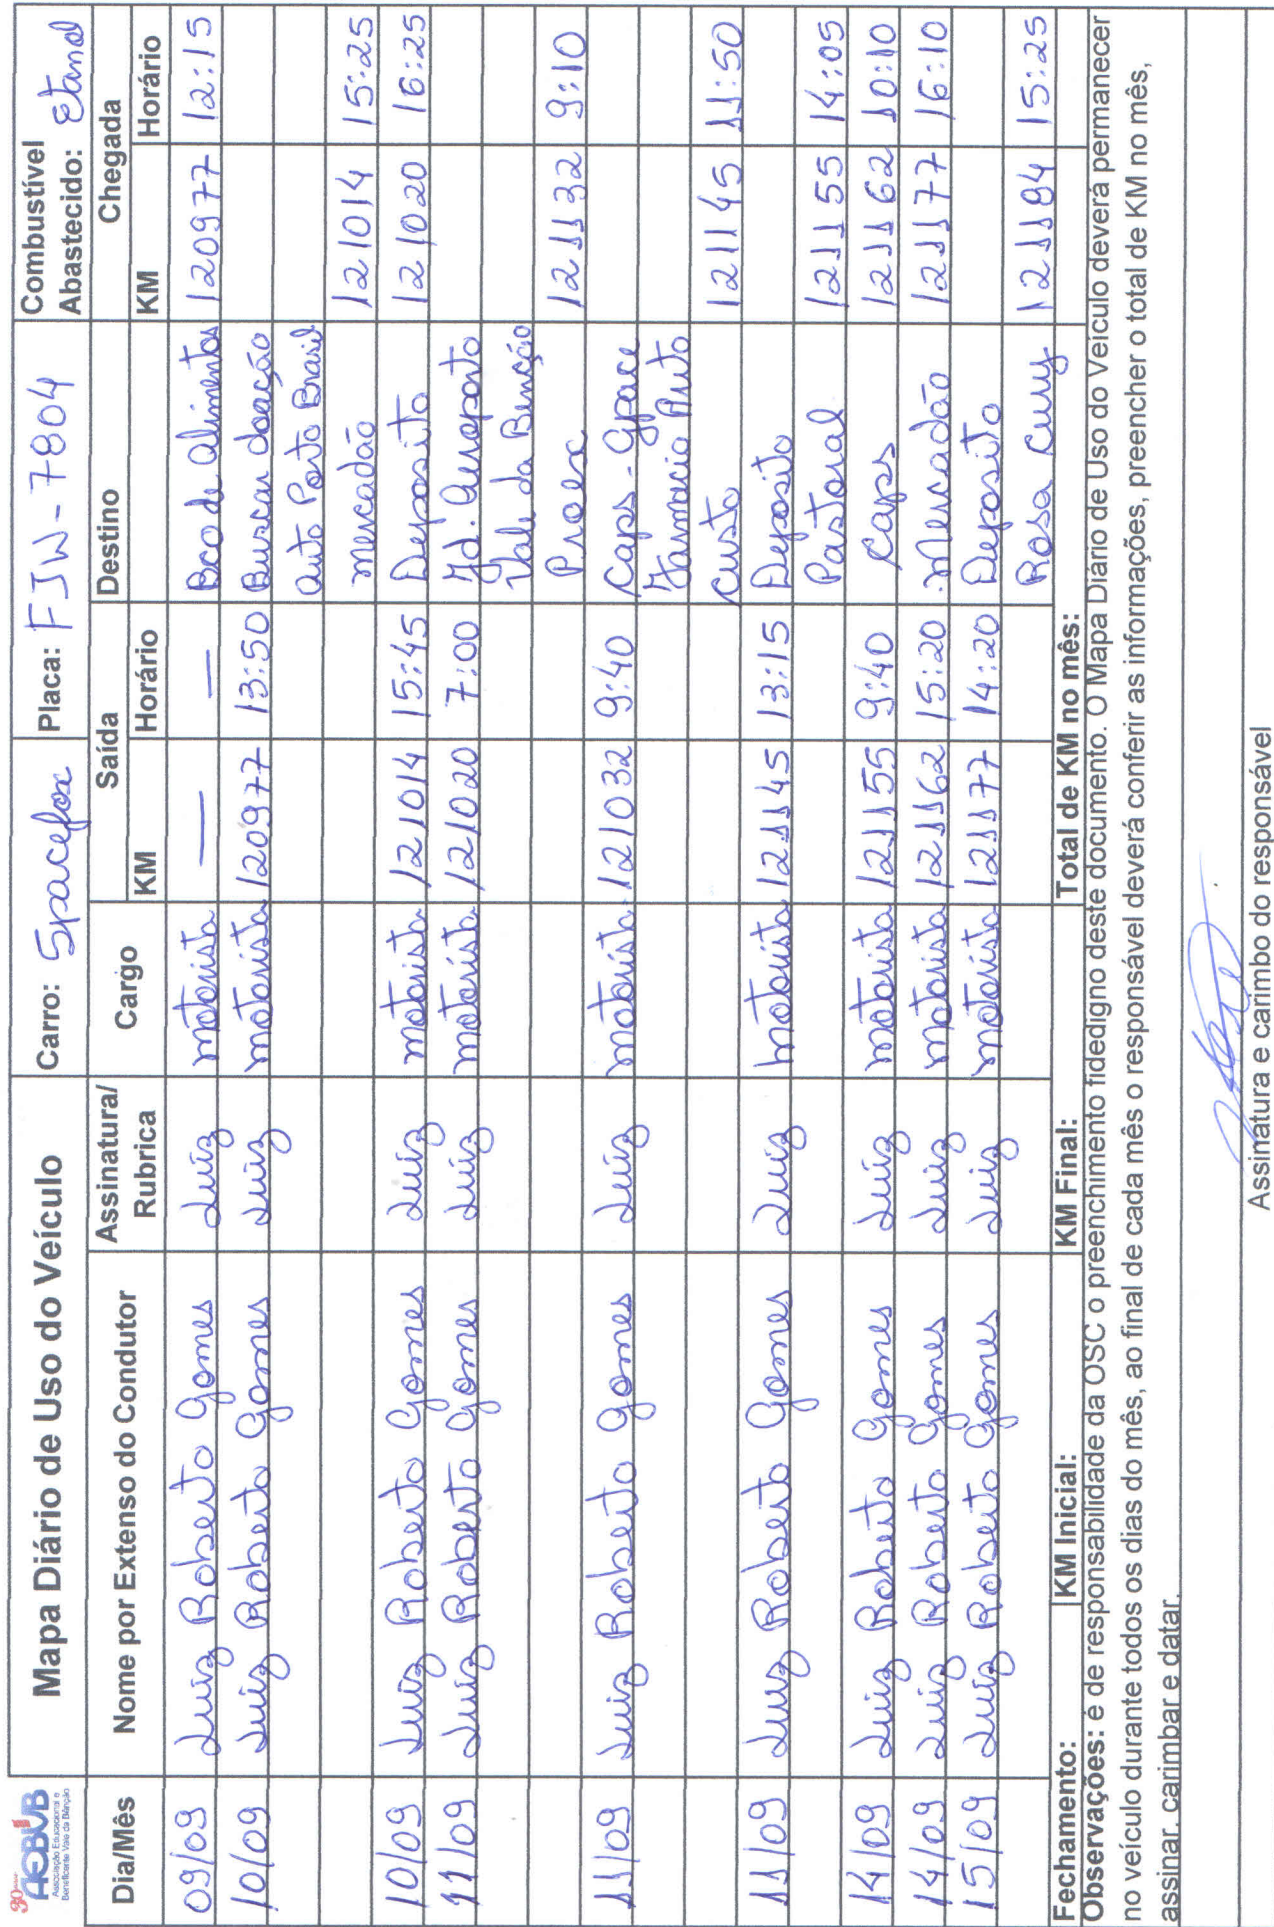 30 anos
AEBVB
Associação Educacional e
Beneficente Vale da Bênção
Mapa Diário de Uso do Veículo
Carro: Spacefox
Placa: FJW-7804
Combustível
Abastecido: Etanol
Dia/Mês Nome por Extenso do Condutor Assinatura/ Rubrica Cargo Saída Destino Chegada
KM Horário KM Horário
09/09 Luiz Roberto Gomes Luiz motorista — — Bco de Alimentos 120977 12:15
10/09 Luiz Roberto Gomes Luiz motorista 120977 13:50 Buscar doação
Auto Posto Brasil
mercadão 121014 15:25
10/09 Luiz Roberto Gomes Luiz motorista 121014 15:45 Deposito 121020 16:25
11/09 Luiz Roberto Gomes Luiz motorista 121020 7:00 Jd. Aeroporto
Vale da Benção
Proex 121132 9:10
11/09 Luiz Roberto Gomes Luiz motorista 121032 9:40 Caps - Gpaci
Farmacia Auto
custo 121145 11:50
11/09 Luiz Roberto Gomes Luiz motorista 121145 13:15 Deposito
Pastoral 121155 14:05
14/09 Luiz Roberto Gomes Luiz motorista 121155 9:40 Caps 121162 10:10
14/09 Luiz Roberto Gomes Luiz motorista 121162 15:20 mercadão 121177 16:10
15/09 Luiz Roberto Gomes Luiz motorista 121177 14:20 Deposito
Rosa Cury 121184 15:25
Fechamento: KM Inicial: KM Final: Total de KM no mês:
Observações: é de responsabilidade da OSC o preenchimento fidedigno deste documento. O Mapa Diário de Uso do Veículo deverá permanecer
no veículo durante todos os dias do mês, ao final de cada mês o responsável deverá conferir as informações, preencher o total de KM no mês,
assinar, carimbar e datar.
Assinatura e carimbo do responsável